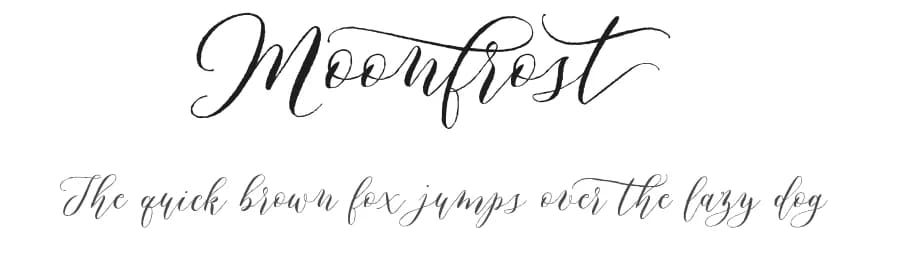 Moonfrost
The quick brown fox jumps over the lazy dog